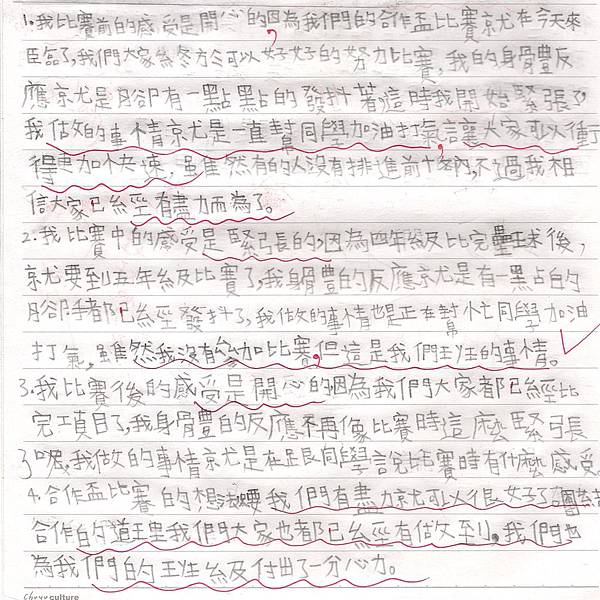 1.我比賽前的感受是開心的,因為我們的合作盃比賽就在今天來
臨了,我們大家終於可以好好的努力比賽,我的身體反
應就是腳有一點點的發抖著這時我開始緊張了
我做的事情就是一直幫同學加油打氣,讓大家可以衝行
得更加快速,雖然有的人沒有排進前十名內,不過我相
信大家已經有盡力而為了。
2.我比賽中的感受是緊張的,因為四年級比完壘球後,
就要到五年級比賽了,我身體的反應就是有一點點的
腳都已經發抖了,我做的事情也是正在幫忙同學加油
打氣,雖然我沒有參加比賽,但這是我們班的事情。
3.我比賽後的感受是開心的因為我們大家都已經比
完項目了,我身體的反應不再像比賽時這麼緊張
了呢,我做的事情就是在跟同學說比賽時有什麼感受。
4.合作盃比賽的想法我們有盡力就可以很好了團結
合作的道理我們大家也都已經有做到。我們也
為我們的班級付出了一分心力。
culture